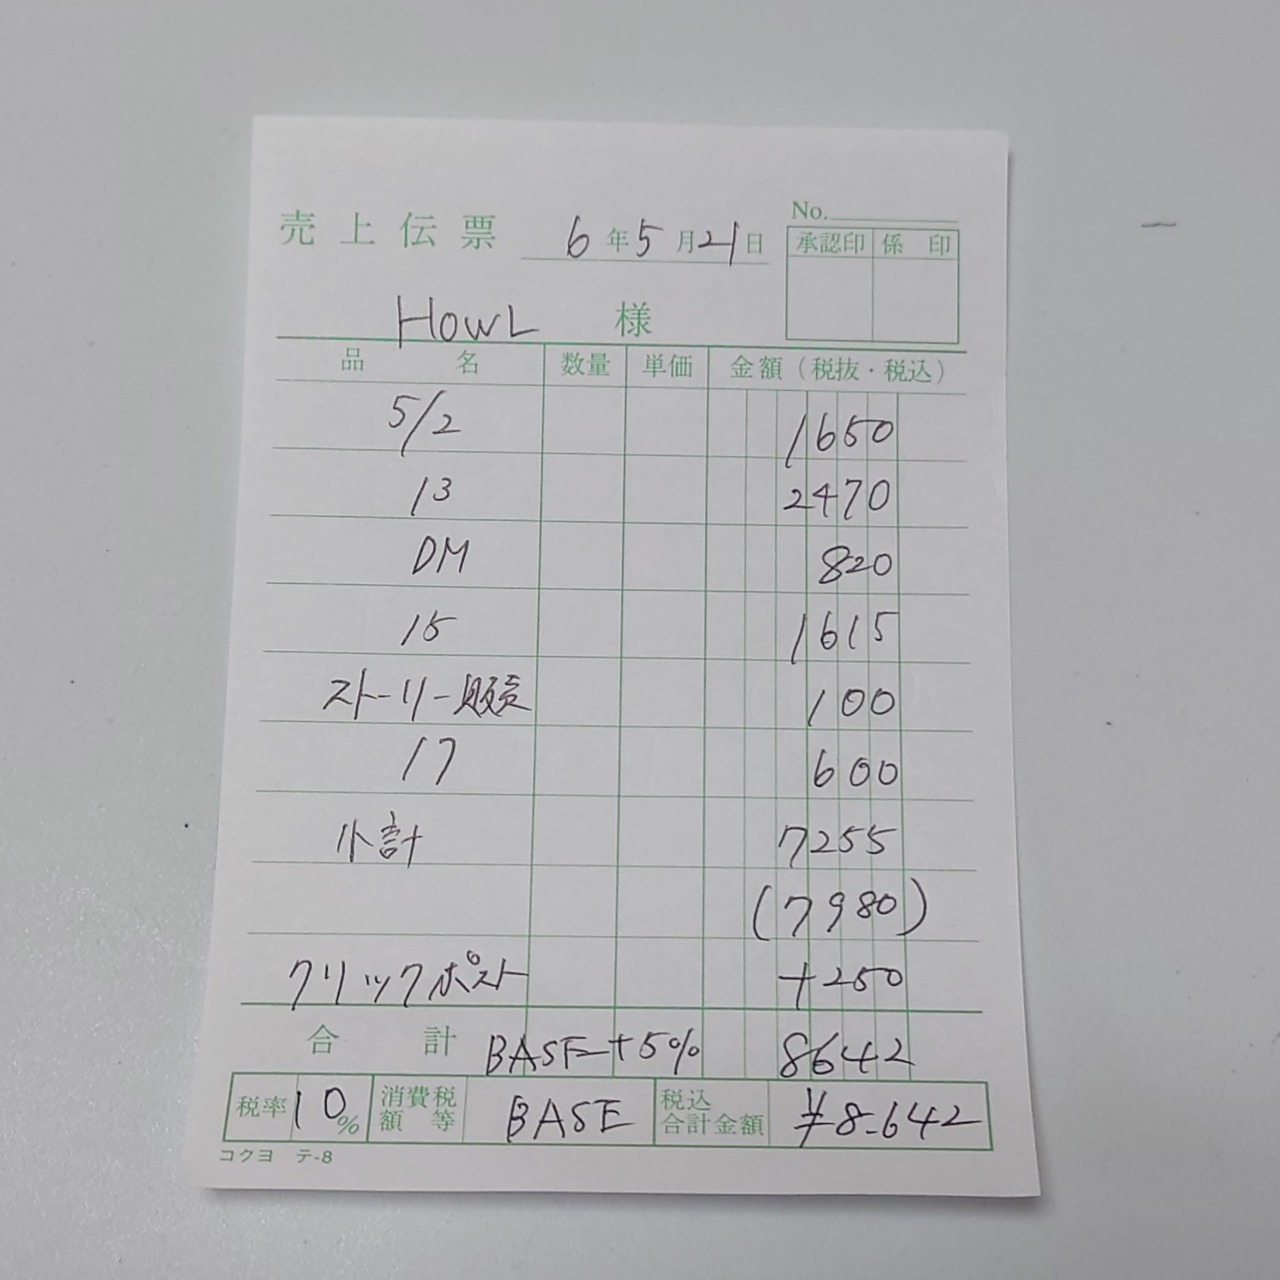 No.
売上伝票 6年5月21日
承認印 係印
HOWL 様
品名 数量 単価 金額(税抜・税込)
5/2 1650
13 2470
DM 820
15 1615
ストーリー販売 100
17 600
小計 7255
(7980)
クリックポスト +250
合計 BASE+5% 8642
税率10% 消費税額等 BASE 税込合計金額 ¥8-642
コクヨ テ-8